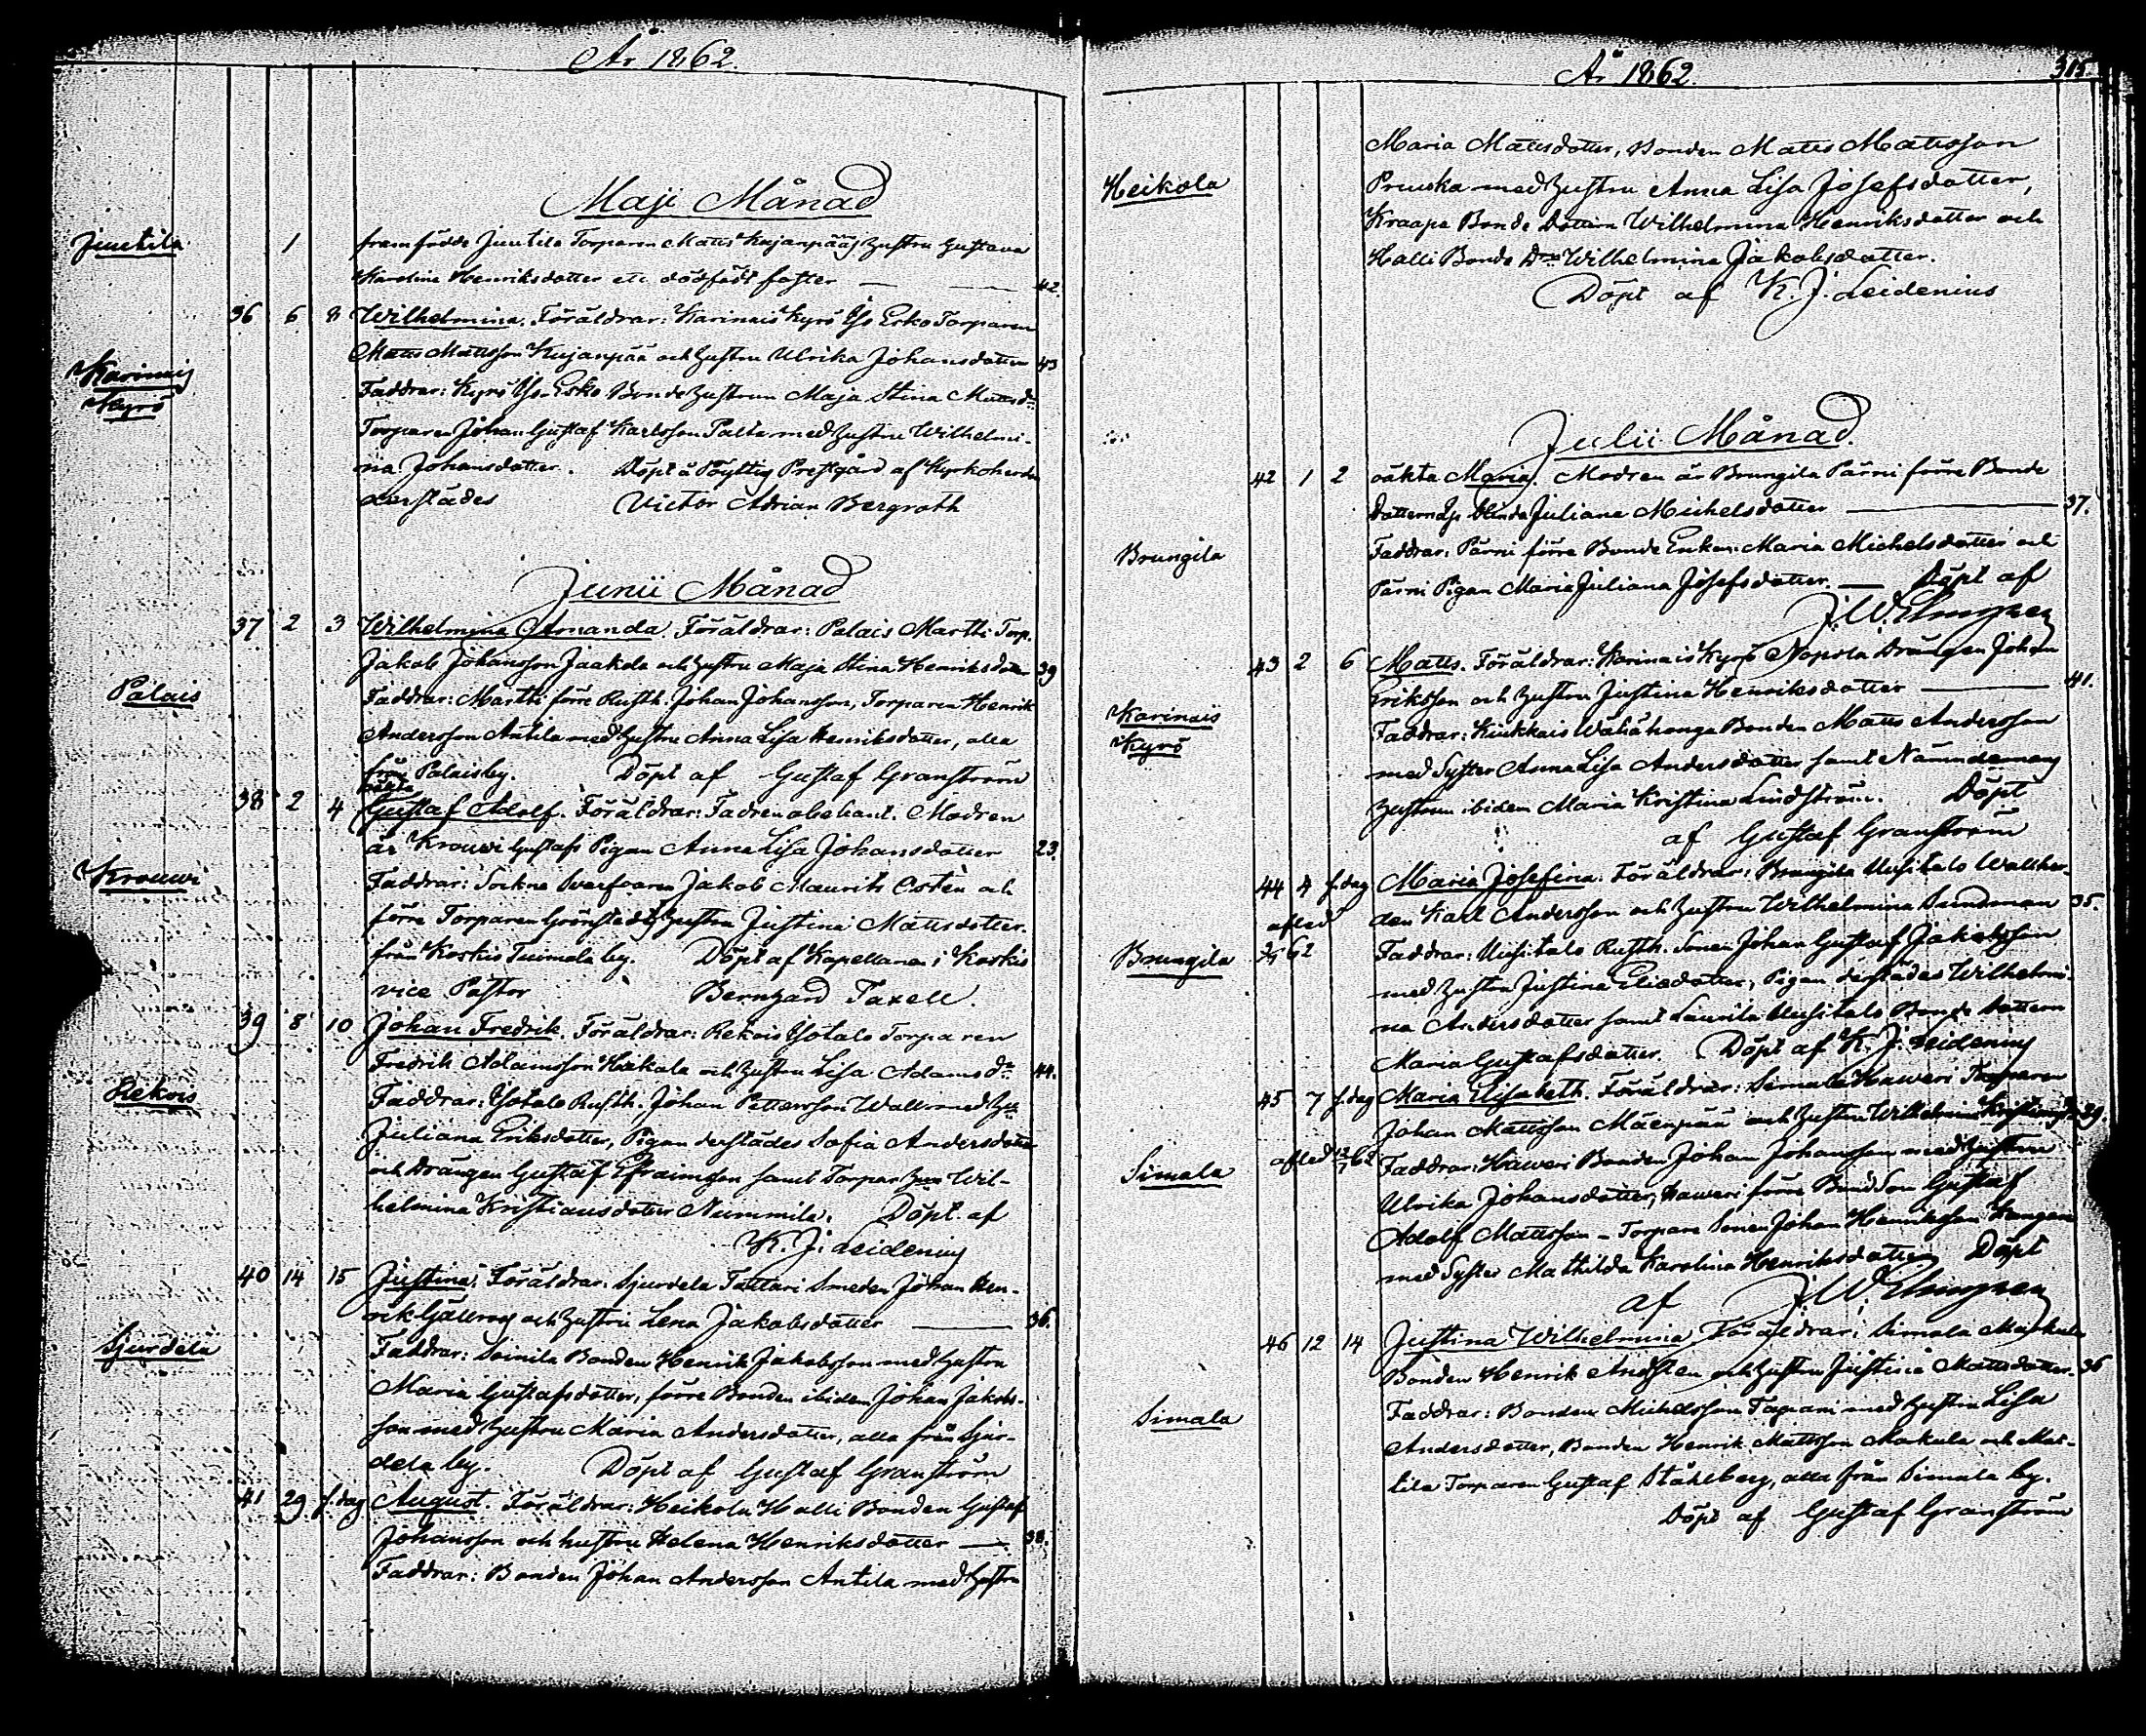 År 1862.
Maji Månad
Juutila 1 framfödde Juutila Torparen Matts Kujanpääs hustru Gustava
Karolina Henriksdotter ett dödfödt foster — 42.
36 6 8 Wilhelmina. Föräldrar: Karinais Kyrö Yso Erko Torparen
Karinais Kyrö
Matts Mattsson Kujanpää och hustru Ulrika Johansdotter 43
Faddrar: Kyrö Yso-Erko Bonde hustrun Maja Stina Mattsdr
Torparen Johan Gustaf Karlsson Palta med hustru Wilhelmi-
na Johansdotter. Döpt å Pöyttis Prestgård af Kyrkoherden
derstädes Victor Adrian Bergroth
Junii Månad
37 2 3 Wilhelmina Amanda. Föräldrar: Palais Martti Torp.
Jakob Johansson Jaakola och hustru Maja Stina Henriksdotter 39
Palais
Faddrar: Martti förre Rusth. Johan Johansson, Torparen Henrik
Andersson Antila med hustru Anna Lisa Henriksdotter, alla
från Palais by. Döpt af Gustaf Granström
38 2 4 oäkta Gustaf Adolf. Föräldrar: Fadren obekant. Modren
är Krouvi Gustafs Pigan Anna Lisa Johansdotter 23.
Krouwi
Faddrar: Sockne Svarfvaren Jakob Maurits Costén och
förre Torparen Grönstedts hustru Justina Mattsdotter
från Koskis Tuimala by. Döpt af Kapellanen i Koskis
vice Pastor Bernhard Taxell.
39 8 10 Johan Fredrik. Föräldrar: Rekois Ysotalo Torparen
Fredrik Adamsson Heikola och hustru Lisa Adamsdr 44.
Rekois
Faddrar: Ysotalo Rusth. Johan Pettersson Wall med hu
Juliana Eriksdotter, Pigan derstädes Sofia Andersdotter
och Drängen Gustaf Efraimsson samt Torpar hun Wil-
helmina Kristiansdotter Nummila. Döpt af
K. J. Leidenius
40 14 15 Justina. Föräldrar: Sjurdela Tattari Smeden Johan Hen-
rik Gällros och hustru Lena Jakobsdotter — 36.
Sjurdela
Faddrar: Soinila Bonden Henrik Jakobsson med hustru
Maria Gustafsdotter, förre Bonden ibidem Johan Jakobs-
son med hustru Maria Andersdotter, alla från Sjur-
dela by. Döpt af Gustaf Granström
41 29 s.dag August. Föräldrar: Heikola Halli Bonden Gustaf
Johansson och hustru Helena Henriksdotter — 38.
Faddrar: Bonden Johan Andersson Antila med hustru
År 1862. 315.
Maria Mattsdotter, Bonden Matts Mattsson
Heikola
Pruuka med hustru Anna Lisa Josefsdotter,
Kraapa Bonde Dottern Wilhelmina Henriksdotter och
Halli Bonde Drn Wilhelmina Jakobsdotter.
Döpt af K. J. Leidenius
Julii Månad.
42 1 2 oäkta Maria. Modren är Brungila Pärni förre Bonde
Dottern Juliana Michelsdotter — 37.
Brungila
Faddrar: Pärni förre Bonde Enkan Maria Michelsdotter och
Pärni Pigan Maria Juliana Josefsdotter. — Döpt af
J. W. Elmgren
43 2 6 Matts. Föräldrar: Karinais Kyrö Nopola Drängen Johan
Eriksson och hustru Justina Henriksdotter — 41.
Karinais Kyrö
Faddrar: Kiukkais Wähähonga Bonden Matts Andersson
med Syster Anna Lisa Andersdotter samt Nämndemans
hustrun ibidem Maria Kristina Lindström. Döpt
af Gustaf Granström
44 4 s.dag Maria Josefina. Föräldrar: Brungila Uusitalo Wallher-
den Karl Andersson och hustru Wilhelmina Sundman 35.
afled
Brungila
Faddrar: Uusitalo Rusth. Sonen Johan Gustaf Jakobsson
med hustru Justina Eliedotter, Pigan derstädes Wilhelmi-
na Andersdotter samt Laurila Uusitalo Bonde Dottern
Maria Gustafsdotter. Döpt af K. J. Leidenius
45 7 s.dag Maria Elisabeth. Föräldrar: Simala Haweri Torparen
Johan Mattsson Mäenpää och hustru Wilhelmina 39.
Simala afled
Faddrar: Haweri Bonden Johan Johansson med hustru
Ulrika Johansdotter, Haweri förre Bond Son Gustaf
Adolf Mattsson – Torpare Sonen Johan Henriksson Kangan
med Syster Mathilda Karolina Henriksdotter Döpt
af J. W. Elmgren
46 12 14 Justina Wilhelmina. Föräldrar: Simala Maskula
Bonden Henrik Andsten och hustru Justina Mattsdotter. 36
Simala
Faddrar: Bonden Michelsson Tapani med hustru Lisa
Andersdotter, Bonden Henrik Mattsson Makula och Mat-
tila Torparen Gustaf Ståhlberg, alla från Simala by.
Döpt af Gustaf Granström